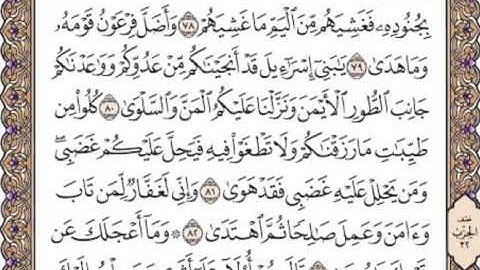 بِجُنُودِهِۦ فَغَشِيَهُم مِّنَ ٱلْيَمِّ مَا غَشِيَهُمْ ٧٨ وَأَضَلَّ فِرْعَوْنُ قَوْمَهُۥ
وَمَا هَدَىٰ ٧٩ يَٰبَنِىٓ إِسْرَٰٓءِيلَ قَدْ أَنجَيْنَٰكُم مِّنْ عَدُوِّكُمْ وَوَٰعَدْنَٰكُمْ
جَانِبَ ٱلطُّورِ ٱلْأَيْمَنَ وَنَزَّلْنَا عَلَيْكُمُ ٱلْمَنَّ وَٱلسَّلْوَىٰ ٨٠ كُلُوا۟ مِن
طَيِّبَٰتِ مَا رَزَقْنَٰكُمْ وَلَا تَطْغَوْا۟ فِيهِ فَيَحِلَّ عَلَيْكُمْ غَضَبِى ۖ
وَمَن يَحْلِلْ عَلَيْهِ غَضَبِى فَقَدْ هَوَىٰ ٨١ وَإِنِّى لَغَفَّارٌ لِّمَن تَابَ
وَءَامَنَ وَعَمِلَ صَٰلِحًا ثُمَّ ٱهْتَدَىٰ ٨٢ ۞ وَمَآ أَعْجَلَكَ عَن
نصف
الحزب
٣٢